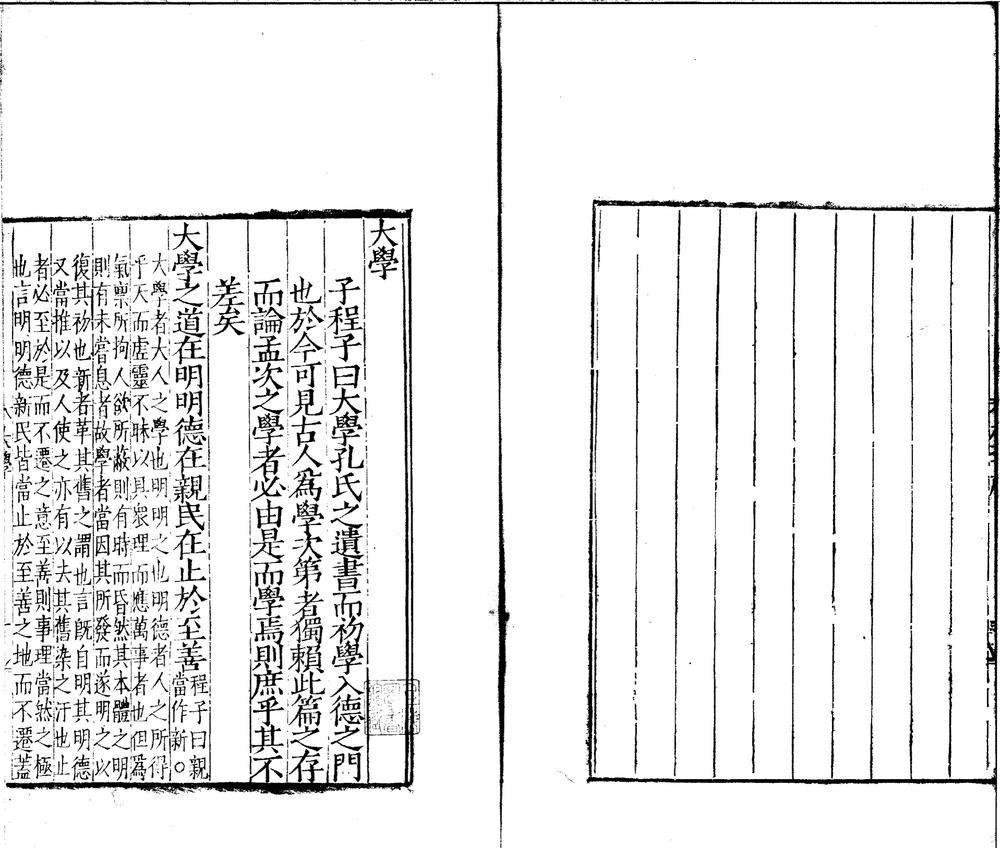 大學
子程子曰大學孔氏之遺書而初學入德之門
也於今可見古人爲學次第者獨賴此篇之存
而論孟次之學者必由是而學焉則庶乎其不
差矣
大學之道在明明德在親民在止於至善程子曰親
當作新○
大學者大人之學也明明之也明德者人之所得
乎天而虛靈不昧以具衆理而應萬事者也但爲
氣禀所拘人欲所蔽則有時而昏然其本體之明
則有未嘗息者故學者當因其所發而遂明之以
復其初也新者革其舊之謂也言既自明其明德
又當推以及人使之亦有以去其舊染之汙也止
者必至於是而不遷之意至善則事理當然之極
也言明明德新民皆當止於至善之地而不遷蓋